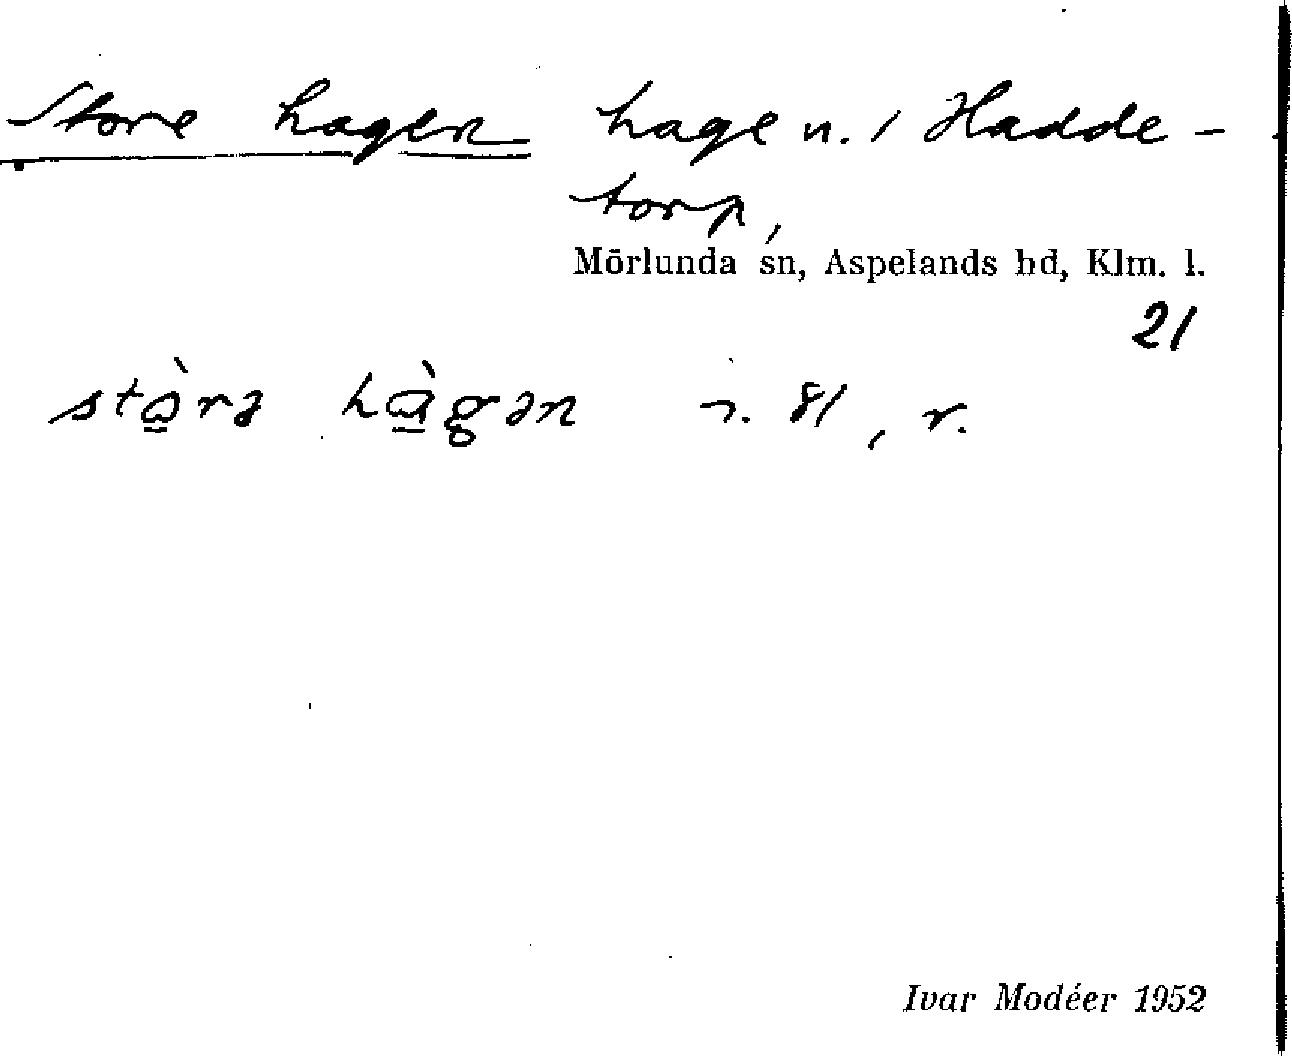 Store hagen hage n. / Hadde-
torp,
Mörlunda sn, Aspelands hd, Klm. l.
21
stò̱rə hà̱gən n. 81, r.
Ivar Modéer 1952